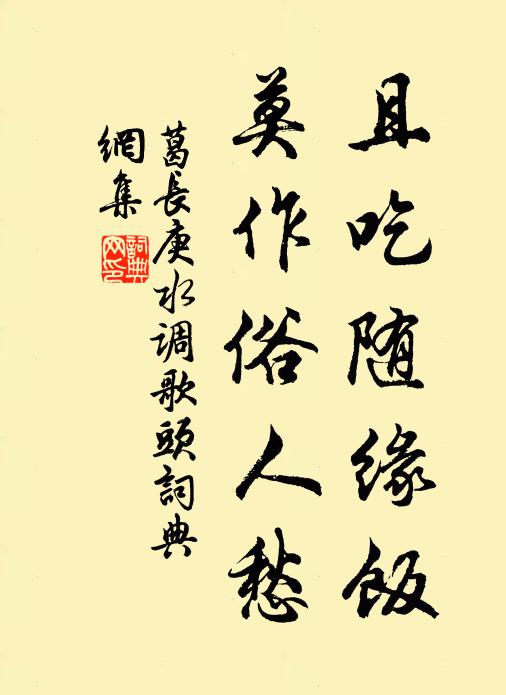 且吃随缘飯
莫作俗人愁
葛長庚水调歌頭詞典
網集
詞典
网印